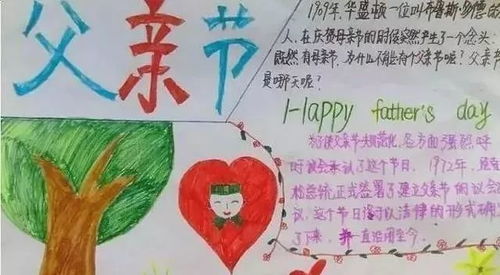 父亲节
1909年,华盛顿一位叫布鲁斯多德的
人,在庆贺母亲节的时候突然产生了一个念头:
既然有母亲节,为什么不能有个父亲节呢?父亲节
是哪天呢?
Happy father's day
为了使父亲节规范化,各方面强烈呼
议会承认了这个节日。1972年,
签署了建立父亲节的议会
议,这个节日终于以法律的形式确
了下来,并一直沿用至今。